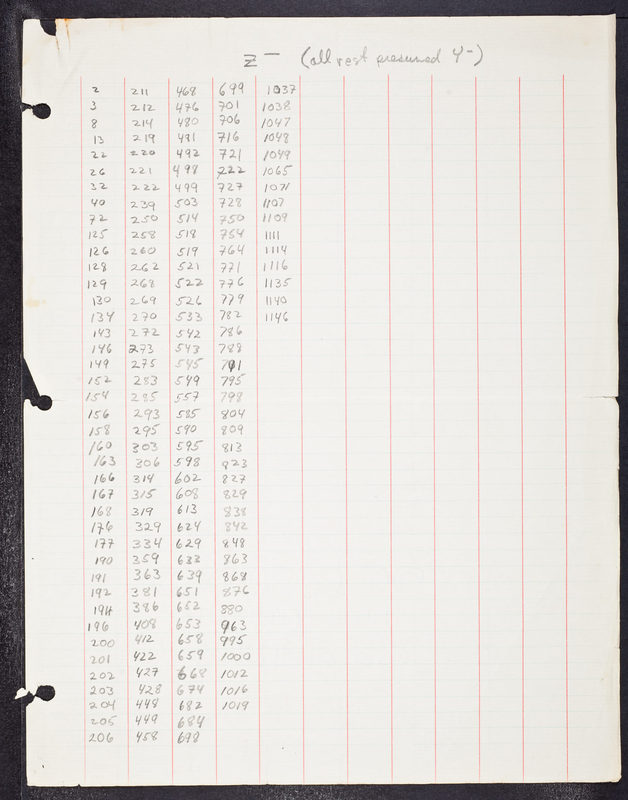 Z⁻ (all rest presumed Y⁻)
2 211 468 699 1037
3 212 476 701 1038
8 214 480 706 1047
13 219 481 716 1048
22 220 492 721 1049
26 221 498 722 1065
32 222 499 727 1071
40 239 503 728 1107
72 250 514 750 1109
125 258 518 754 1111
126 260 519 764 1114
128 262 521 771 1116
129 268 522 776 1135
130 269 526 779 1140
134 270 533 782 1146
143 272 542 786
146 273 543 788
149 275 545 791
152 283 549 795
154 285 557 798
156 293 585 804
158 295 590 809
160 303 595 813
163 306 598 823
166 314 602 827
167 315 608 829
168 319 613 838
176 329 624 842
177 334 629 848
190 359 633 863
191 363 639 868
192 381 651 876
194 386 652 880
196 408 653 963
200 412 658 995
201 422 659 1000
202 427 668 1012
203 428 674 1016
204 448 682 1019
205 449 684
206 458 698